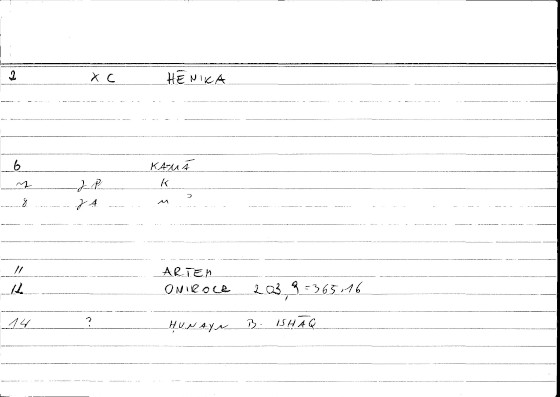 2 X C HĒNIKA
6 KAMĀ
K
8
11 ARTEM
12 ONIROCR 203,9=365.16
14 ? ḤUNAYN B. ISḤĀQ